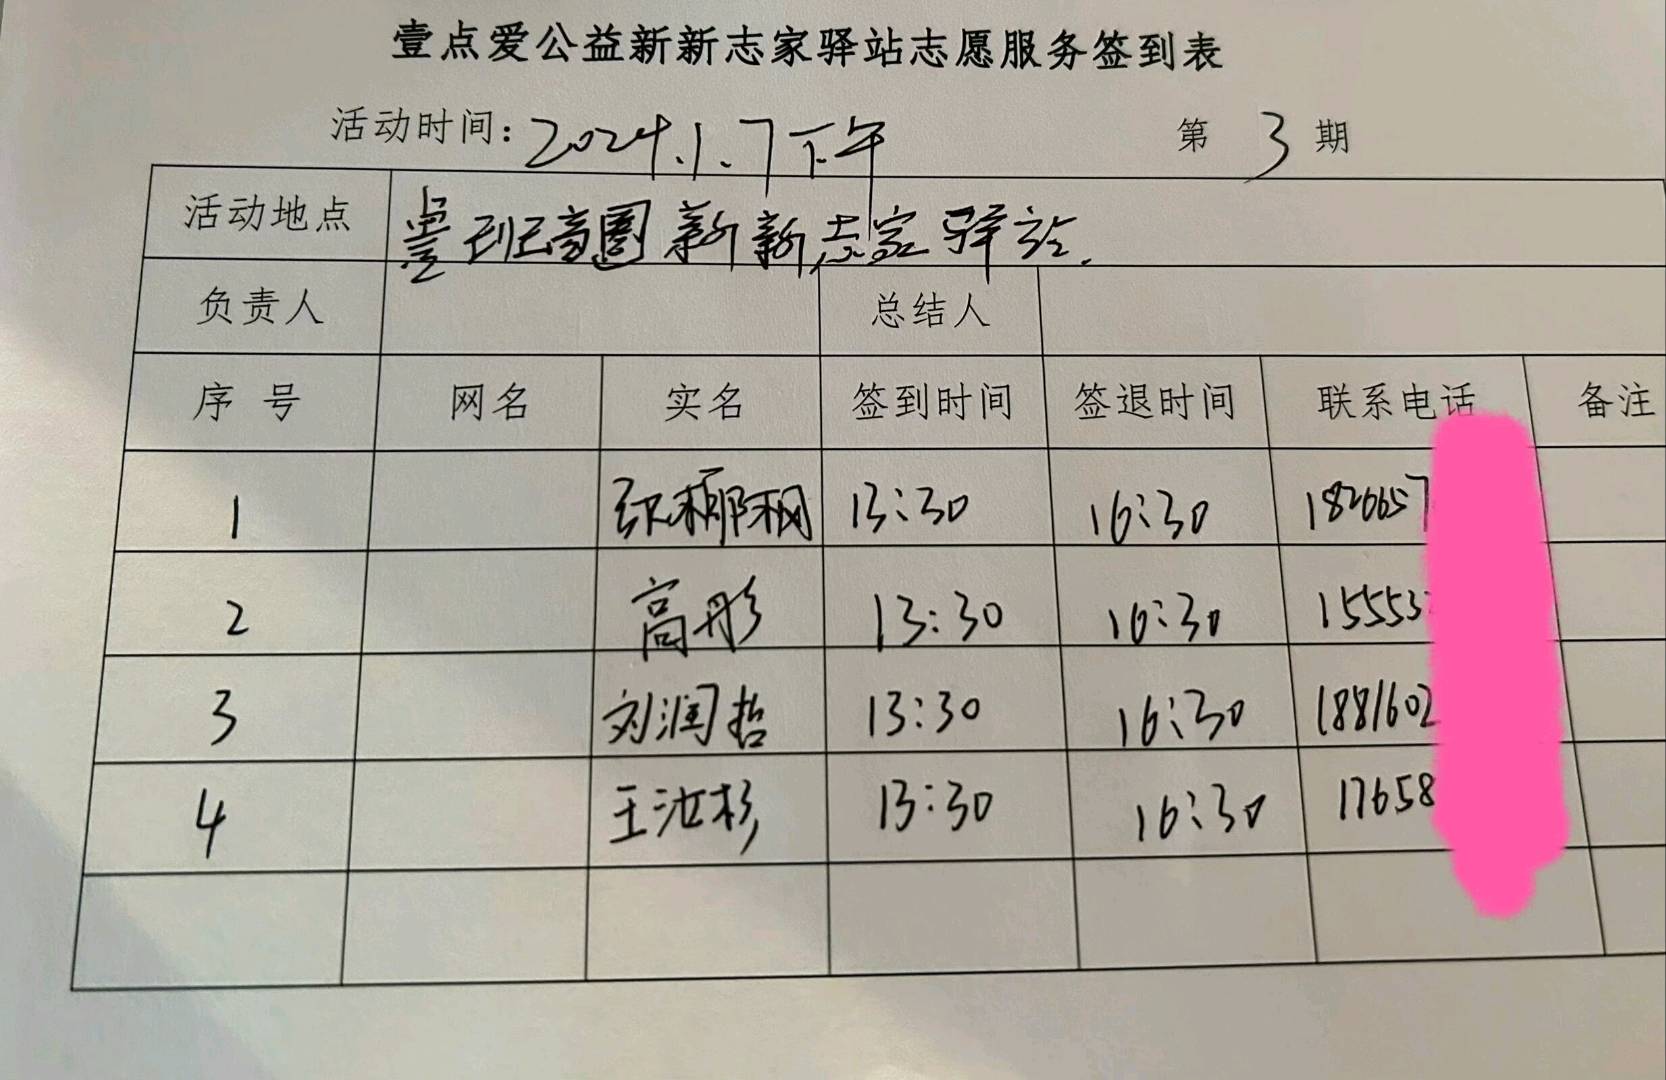 壹点爱公益新新志家驿站志愿服务签到表
活动时间：2024.1.7下午 第 3 期
活动地点 新新志家驿站.
负责人 总结人
序号 网名 实名 签到时间 签退时间 联系电话 备注
1 张椰枫 13:30 16:30 1826657
2 高彤 13:30 16:30 15553
3 刘润哲 13:30 16:30 1881602
4 王汝杉 13:30 16:30 17658